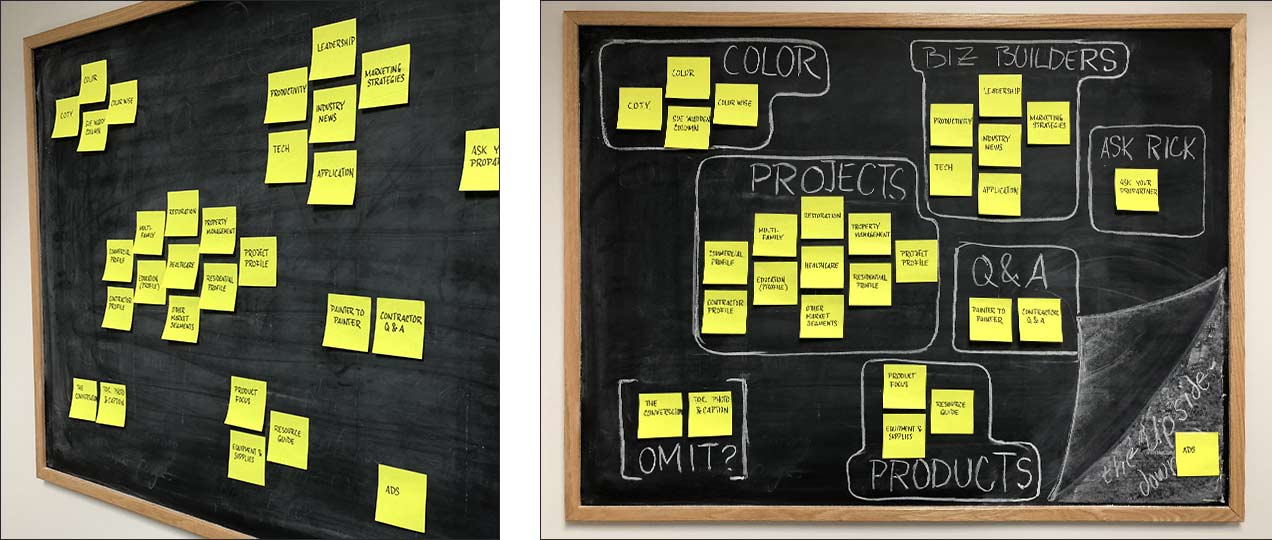 LEADERSHIP
MARKETING
STRATEGIES
COLOR
PRODUCTIVITY
COLOR WISE
INDUSTRY
NEWS
SUE WADDEN
COLUMN
TECH
ASK Y
PROPAR
APPLICATION
RESTORATION
MULTI-
FAMILY
PROPERTY
MANAGEMENT
COMMERCIAL
PROFILE
HEALTHCARE
PROJECT
PROFILE
EDUCATION
(PROFILE)
RESIDENTIAL
PROFILE
CONTRACTOR
PROFILE
OTHER
MARKET
SEGMENTS
PAINTER TO
PAINTER
CONTRACTOR
Q & A
THE
CONVERSATION
TOC PHOTO
& CAPTION
PRODUCT
FOCUS
RESOURCE
GUIDE
EQUIPMENT &
SUPPLIES
ADS
COLOR
COLOR
C.O.T.Y.
COLOR WISE
SUE WADDEN
COLUMN
BIZ BUILDERS
LEADERSHIP
PRODUCTIVITY
MARKETING
STRATEGIES
INDUSTRY
NEWS
TECH
APPLICATION
ASK RICK
ASK YOUR
PROPARTNER
PROJECTS
RESTORATION
MULTI-
FAMILY
PROPERTY
MANAGEMENT
COMMERCIAL
PROFILE
HEALTHCARE
PROJECT
PROFILE
EDUCATION
(PROFILE)
RESIDENTIAL
PROFILE
CONTRACTOR
PROFILE
OTHER
MARKET
SEGMENTS
Q & A
PAINTER TO
PAINTER
CONTRACTOR
Q & A
THE
CONVERSATION
TOC PHOTO
& CAPTION
OMIT?
PRODUCT
FOCUS
RESOURCE
GUIDE
EQUIPMENT &
SUPPLIES
PRODUCTS
the Upside-
down
ADS